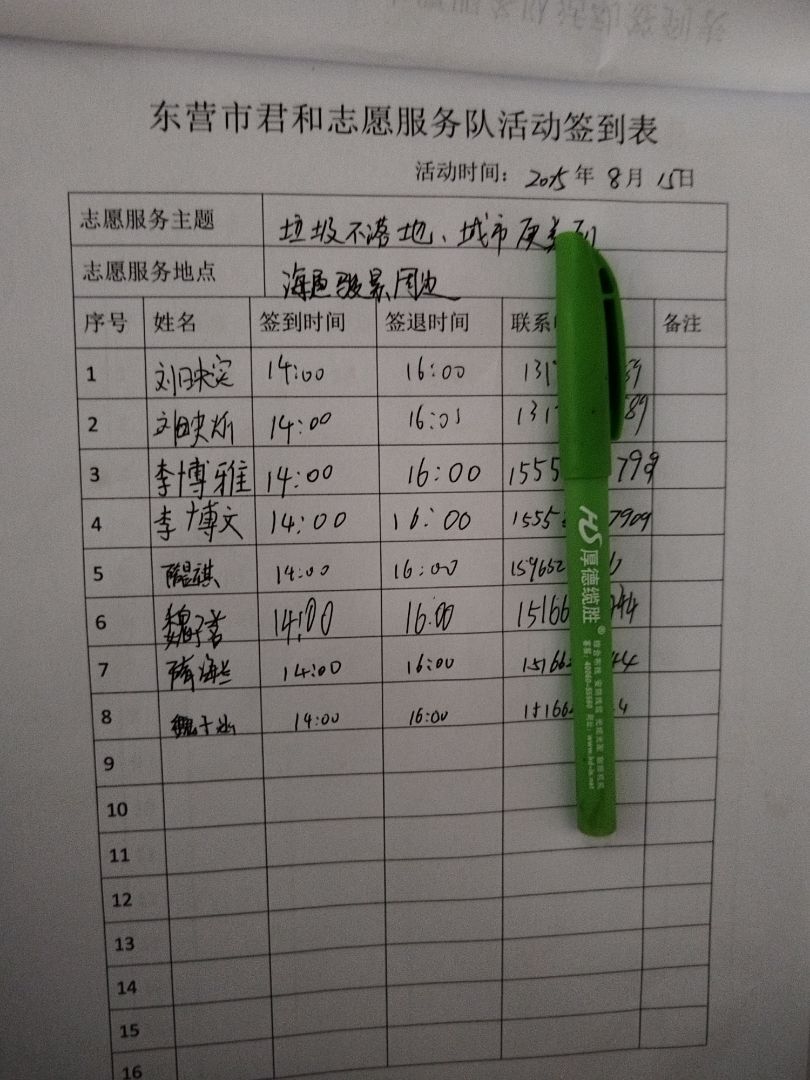 东营市君和志愿服务队活动签到表
活动时间: 2015年 8月 15日
志愿服务主题 垃圾不落地、城市更美丽
志愿服务地点 海通骏景周边
序号 姓名 签到时间 签退时间 联系 备注
1 14:00 16:00 131
2 14:00 16:01 131 89
3 李博雅 14:00 16:00 1555 799
4 李博文 14:00 16:00 1555 7909
5 14:00 16:00 159652
6 14:00 16:00 15166 44
7 隋海兰 14:00 16:00 15166 44
8 14:00 16:00 15166 4
9
10
11
12
13
14
15
16
HS 厚德缆胜®
综合布线 安防线缆
客服: 40060-55660 网址: www.hd-ls.net